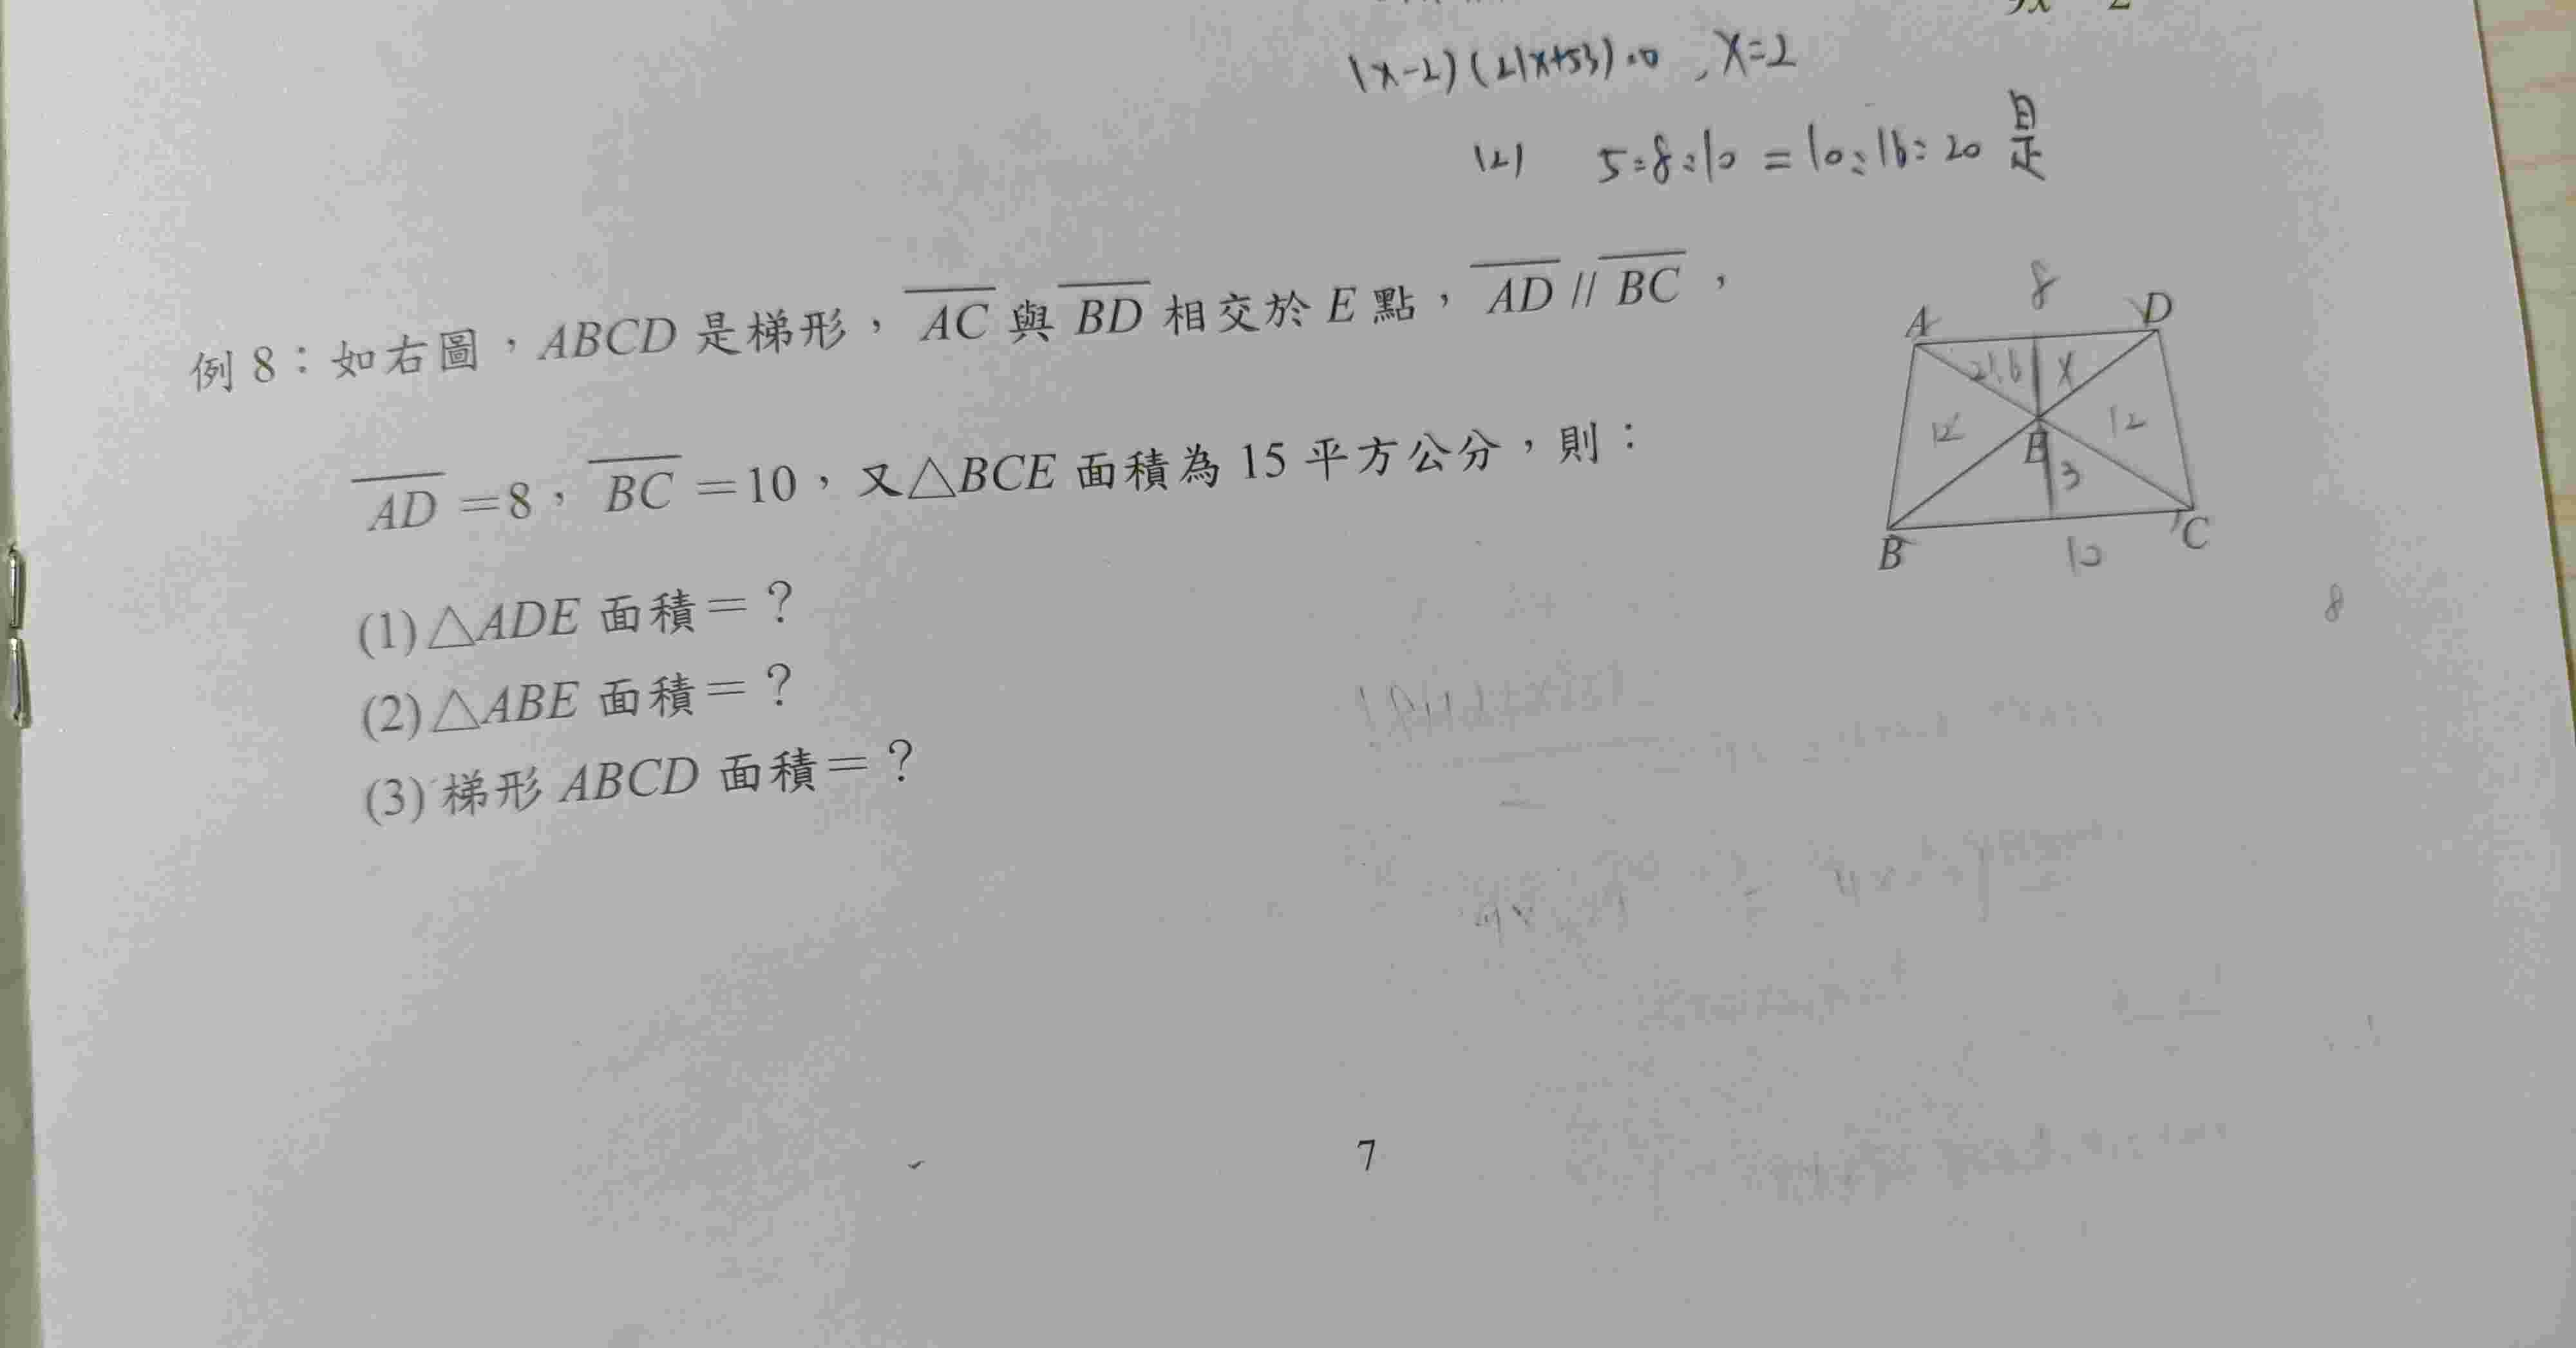 (x-2)(21x+53)=0 , x=2
(2) 5:8:10 = 10:16:20 是
例 8：如右圖，ABCD 是梯形，AC 與 BD 相交於 E 點，AD // BC，
AD =8，BC =10，又△BCE 面積為 15 平方公分，則：
(1)△ADE 面積＝？
(2)△ABE 面積＝？
(3)梯形 ABCD 面積＝？
8
A D
x
12 12
E
3
B C
10
8
7